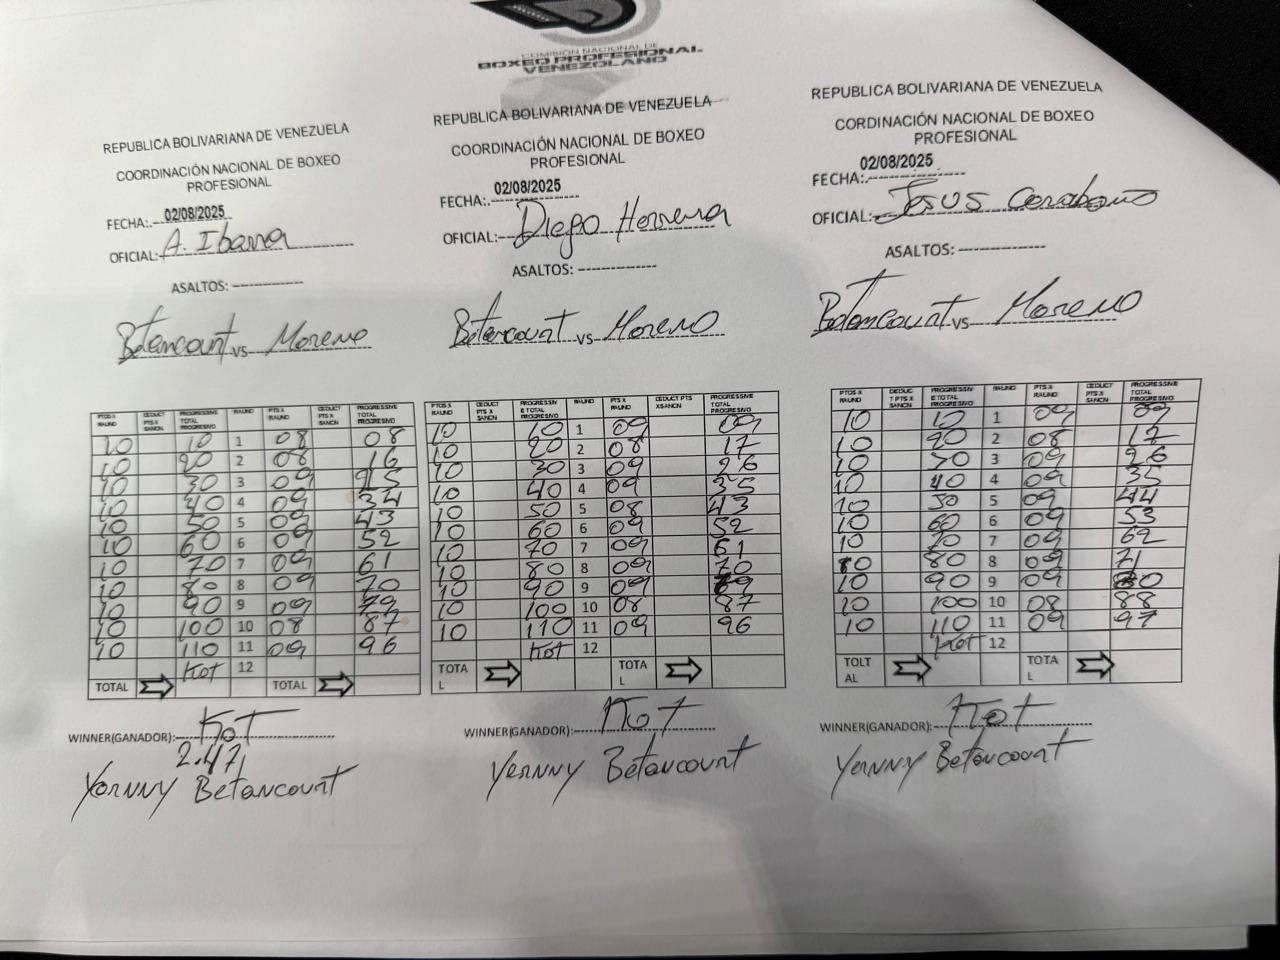 COMISIÓN NACIONAL DE
BOXEO PROFESIONAL
VENEZOLANO
REPUBLICA BOLIVARIANA DE VENEZUELA
COORDINACIÓN NACIONAL DE BOXEO
PROFESIONAL
FECHA: 02/08/2025
OFICIAL: A. Ibarra
ASALTOS:
Betancourt vs Moreno
PTOS X RAUND DEDUCT PTS X SANCN PROGRESSIVE TOTAL PROGRESIVO RAUND PTS X RAUND DEDUCT PTS X SANCN PROGRESSIVE TOTAL PROGRESIVO
10 10 1 08 08
10 20 2 08 16
10 30 3 09 25
10 40 4 09 34
10 50 5 09 43
10 60 6 09 52
10 70 7 09 61
10 80 8 09 70
10 90 9 09 79
10 100 10 08 87
10 110 11 09 96
Kot 12
TOTAL TOTAL
WINNER(GANADOR): KOT
2.47
Yornny Betancourt
REPUBLICA BOLIVARIANA DE VENEZUELA
COORDINACIÓN NACIONAL DE BOXEO
PROFESIONAL
FECHA: 02/08/2025
OFICIAL: Diego Herrera
ASALTOS:
Betancourt vs Moreno
PTOS X RAUND DEDUCT PTS X SANCN PROGRESSIV E TOTAL PROGRESIVO RAUND PTS X RAUND DEDUCT PTS XSANCN PROGRESSIVE TOTAL PROGRESIVO
10 10 1 09 09
10 20 2 08 17
10 30 3 09 26
10 40 4 09 35
10 50 5 08 43
10 60 6 09 52
10 70 7 09 61
10 80 8 09 70
10 90 9 09 79
10 100 10 08 87
10 110 11 09 96
Kot 12
TOTA L TOTA L
WINNER(GANADOR): Kot
Yernny Betancourt
REPUBLICA BOLIVARIANA DE VENEZUELA
CORDINACIÓN NACIONAL DE BOXEO
PROFESIONAL
02/08/2025
FECHA:
OFICIAL: Jesus Carabaño
ASALTOS:
Betancourt vs Moreno
PTOS X RAUND DEDUC T PTS X SANCN PROGRESSIV E TOTAL PROGRESIVO RAUND PTS X RAUND DEDUCT PTS X SANCN PROGRESSIVE TOTAL PROGRESIVO
10 10 1 09 09
10 20 2 08 17
10 30 3 09 26
10 40 4 09 35
10 50 5 09 44
10 60 6 09 53
10 70 7 09 62
10 80 8 09 71
10 90 9 09 80
10 100 10 08 88
10 110 11 09 97
Kot 12
TOLT AL TOTA L
WINNER(GANADOR): Kot
Yernny Betancourt